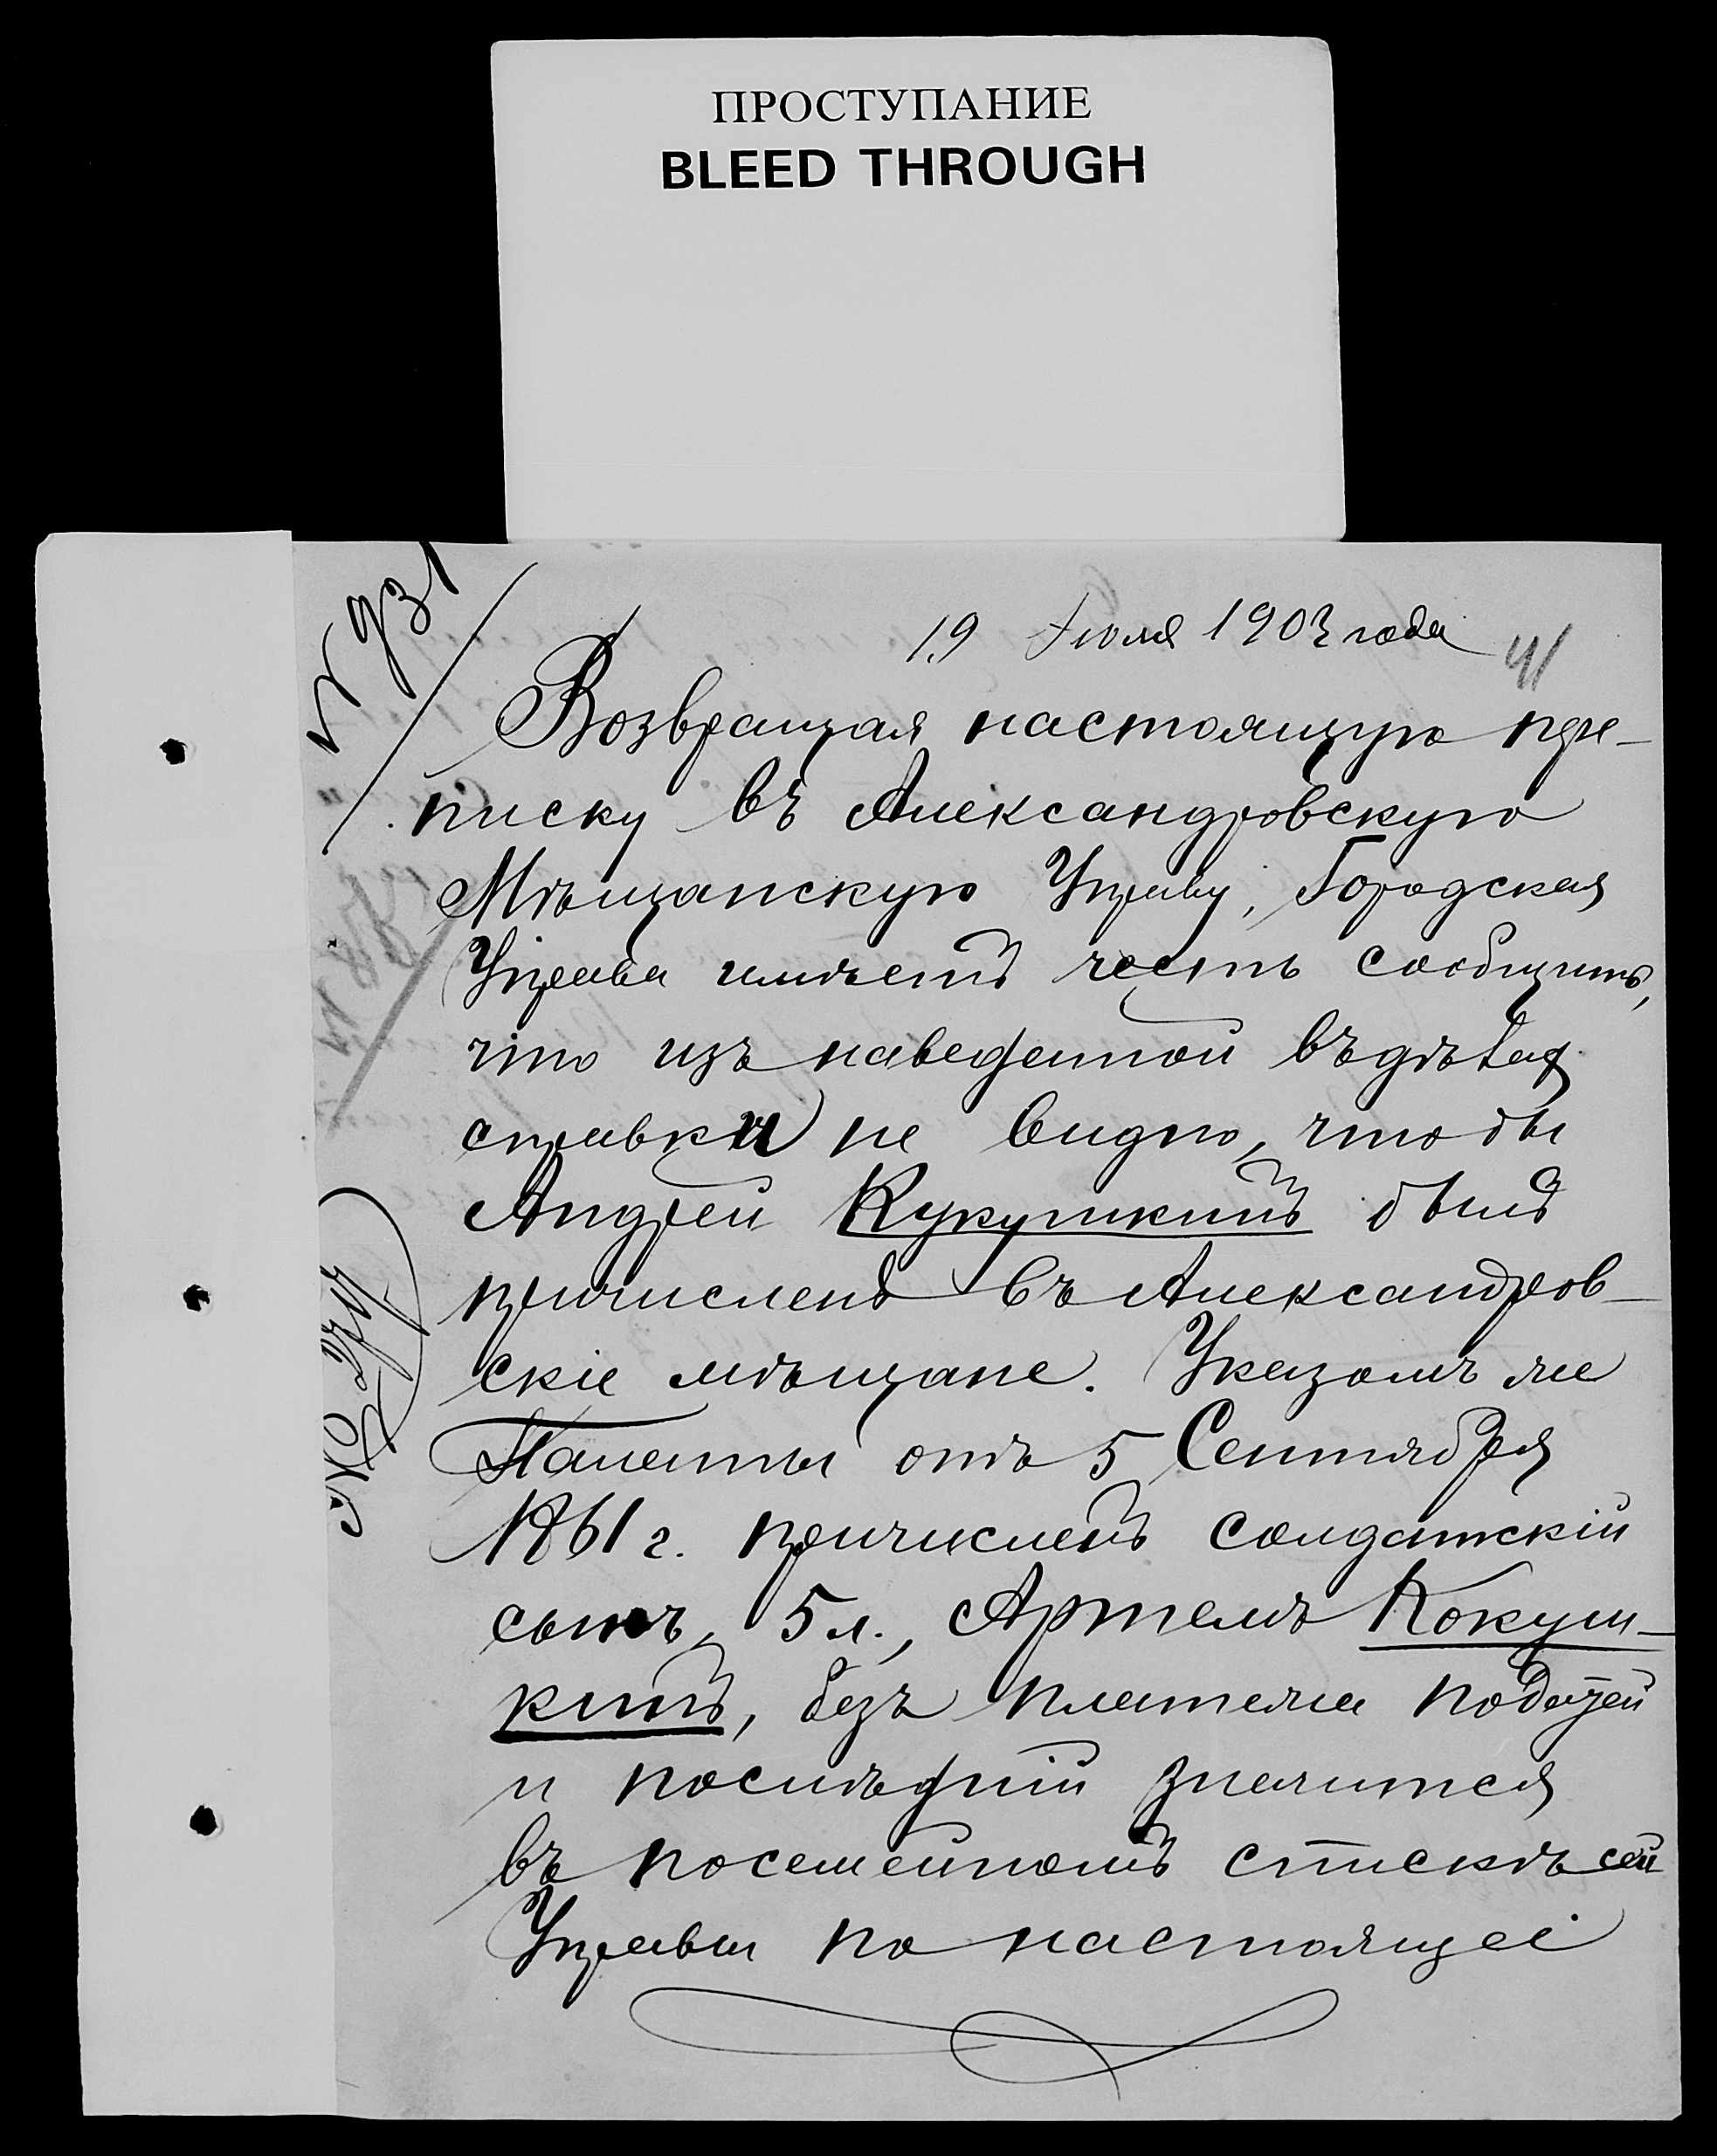 ПРОСТУПАНИЕ
BLEED THROUGH
№ 931
19 Июля 1903 года
41
Возвращая настоящую пере-
писку въ Александровскую
Мѣщанскую Управу, Городская
Управа имѣетъ честь сообщить,
что изъ наведенной въ дѣлах
справки не видно, что бы
Андрей Кукушкинъ былъ
причисленъ въ Александров-
скіе мѣщане. Указомъ же
Палаты отъ 5 Сентября
1861 г. причисленъ солдатскій
сынъ, 5 л., Артемъ Кокуш-
кинъ, безъ платежа податей
и послѣдній значится
въ посемейномъ спискѣ сей
Управы по настоящее